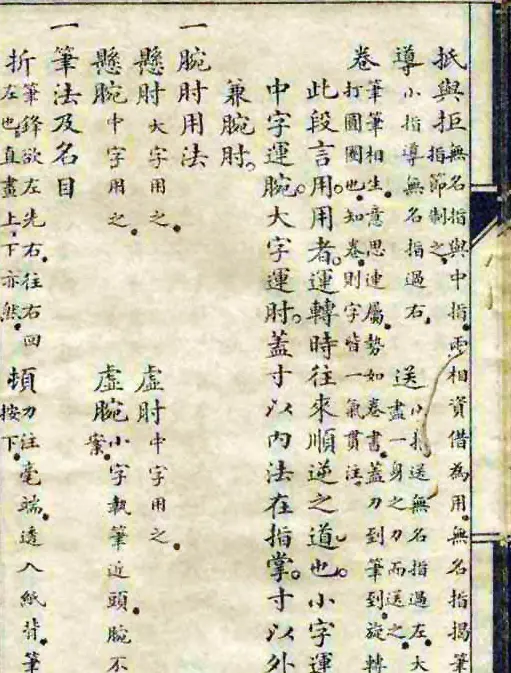 抵與拒無名指與中指、兩相資借為用。無名指揭筆
指節制之。
導小指導無名指過右。送小指送無名指過左。大
盡一身之力而送之。
卷筆筆相生。意思連屬。勢如卷書。蓋力到筆到。旋轉
打圈圈也。知卷則字皆一氣貫注。
此段言用。用者。運轉時往來順逆之道也。小字運
中字運腕。大字運肘。蓋寸以內法在指掌。寸以外
兼腕肘。
一腕肘用法
懸肘大字用之。虛肘中字用之。
懸腕中字用之。虛腕小字執筆近頭。腕不
案。
一筆法及名目
折筆鋒欲左先右。往右回
左也。直畫上下亦然。頓力注毫端。透入紙背。筆
按下。